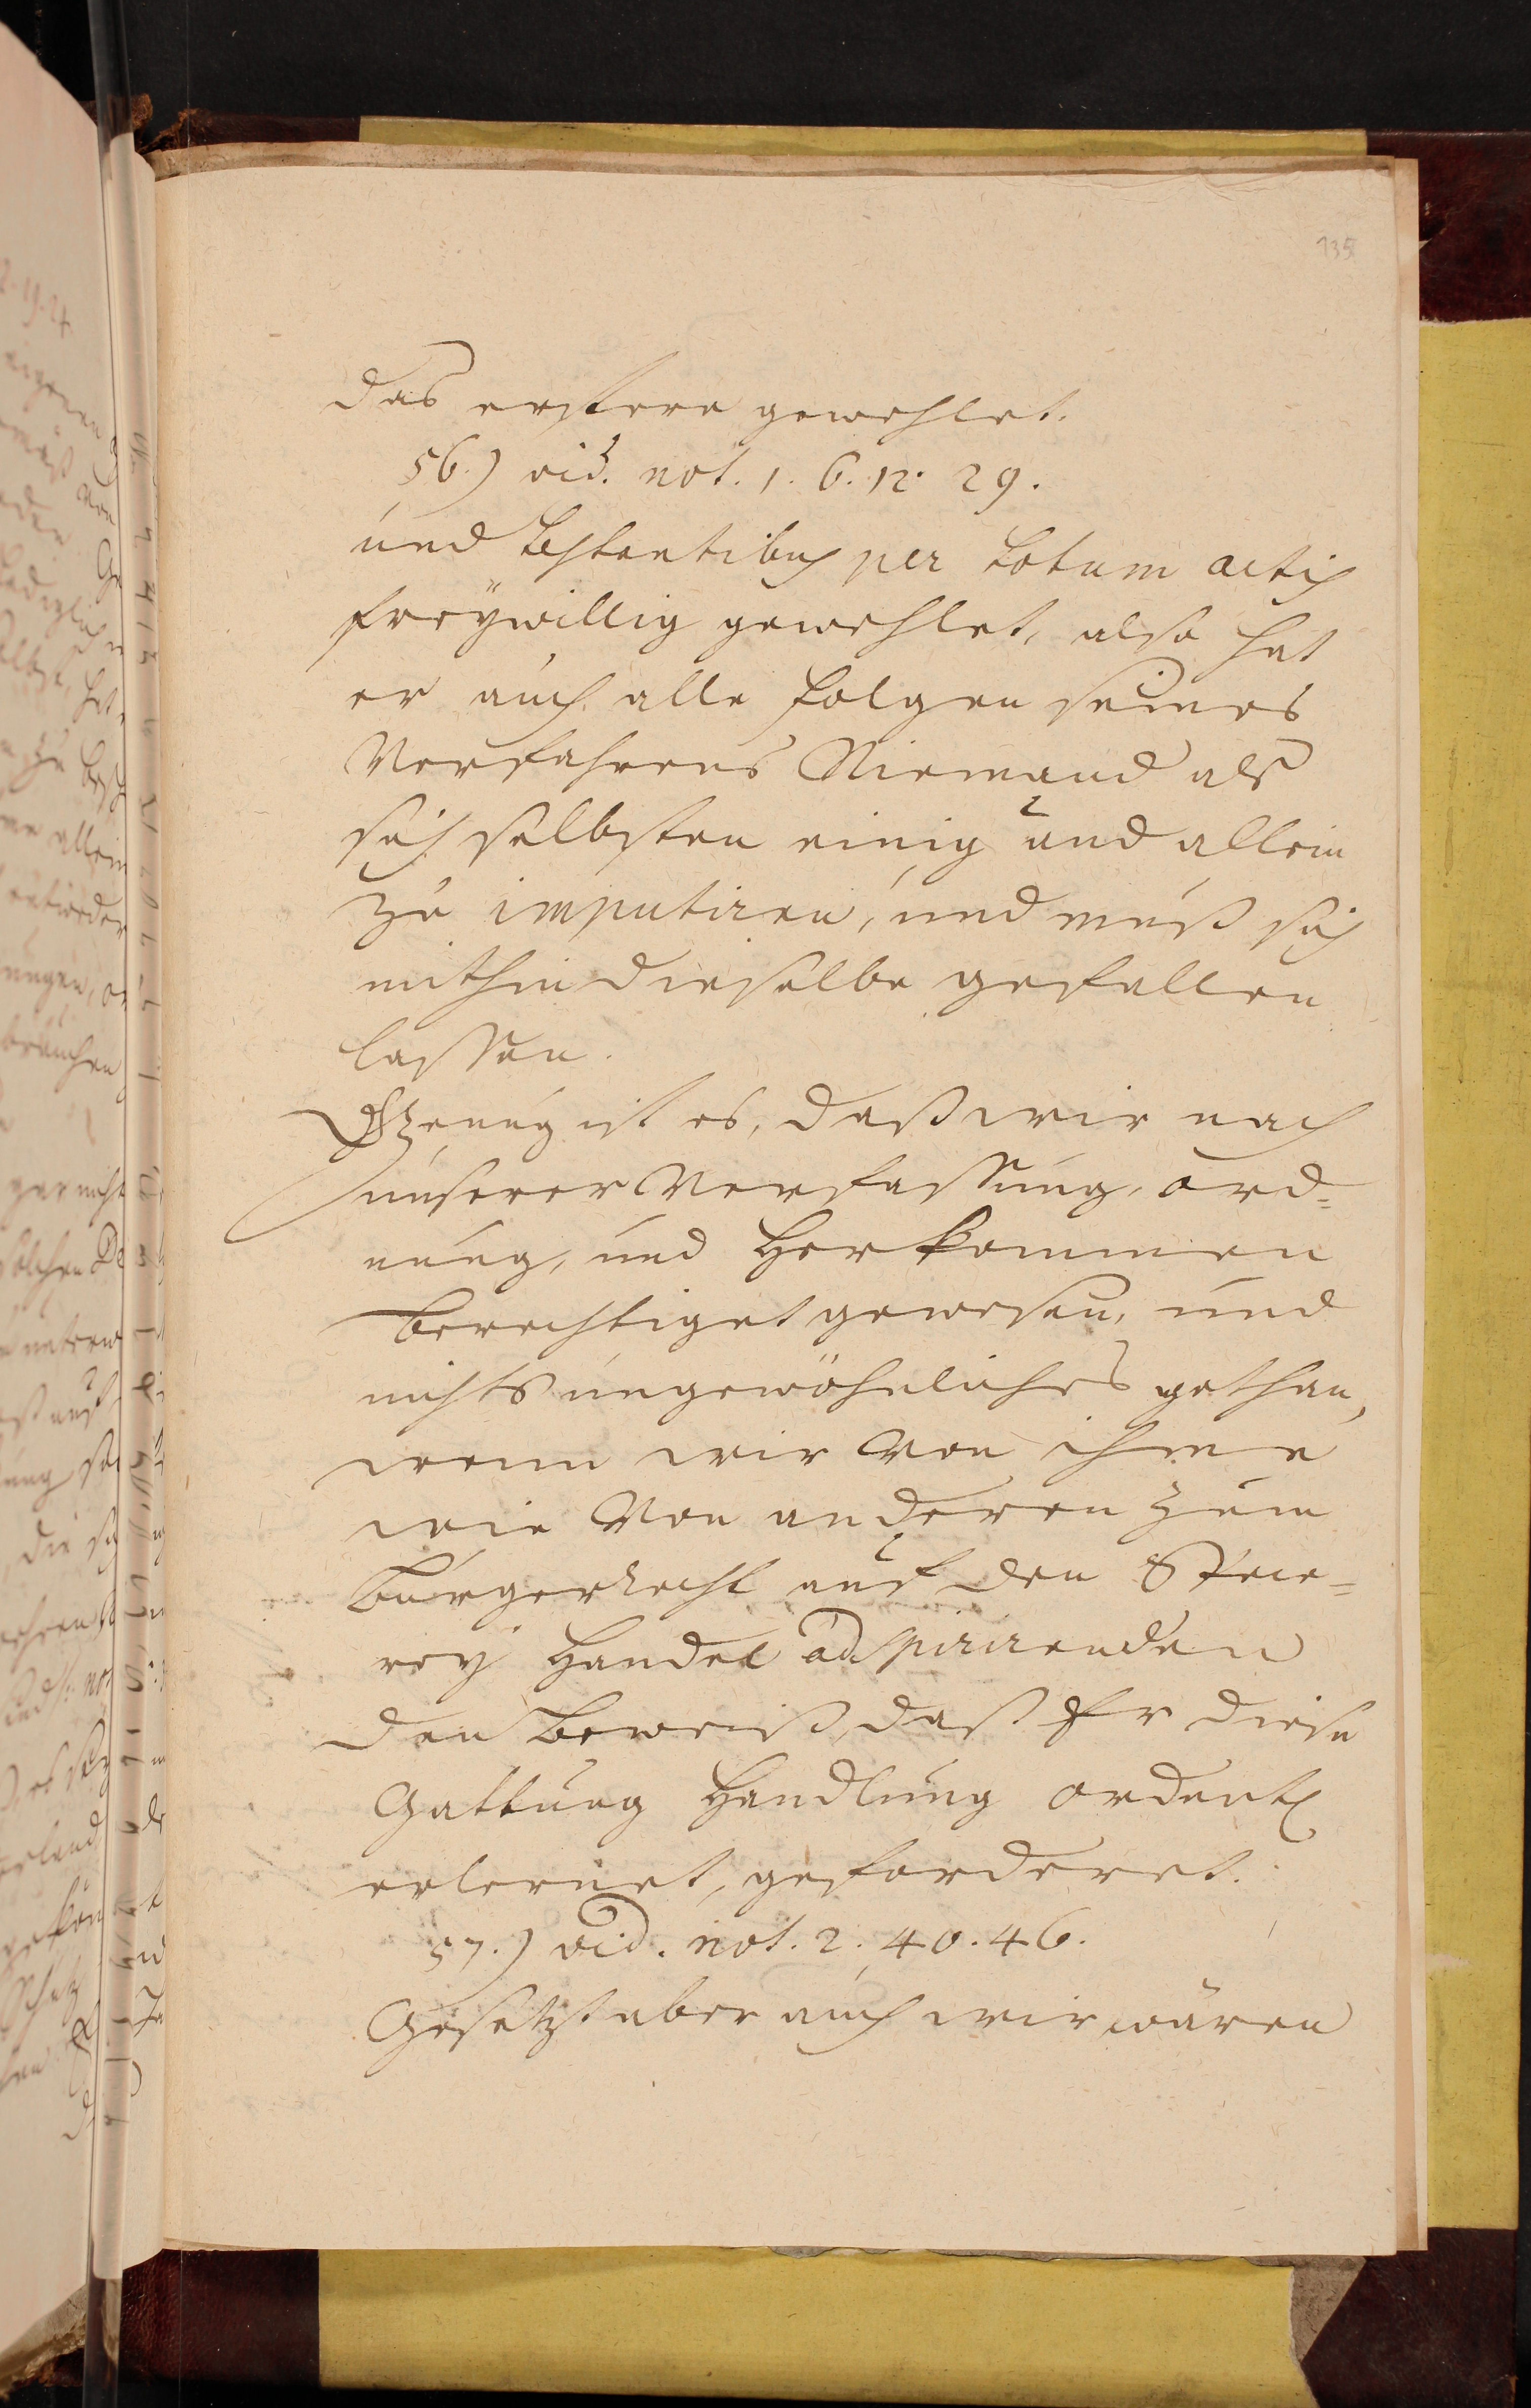 135
das erstere gewehlet.
56.) vid. not. 1. 6. 12. 29.
und testantibus per totum actis
freÿwillig gewehlet, also hat
er auch alle Folgen seines
Verfahrens Niemand als
sich selbsten einig und allein
zu imputiren, und muß sich
mithin dieselbe gefallen
lassen.
Genug ist es, daß wir nach
unserer Verfassung, ord=
nung, und Herkommen
berechtiget gewesen, und
nichts ungewöhnliches gethan,
wenn wir von ihme
wie von anderen zum
Burgerrecht auf den Spece=
reÿ Handel adspirirenden
den Beweiß, daß Er diese
Gattung Handlung ordentl.
erlernet, geforderet.
57.) vid. not. 2. 40. 46.
Gesetzt aber auch wir wären